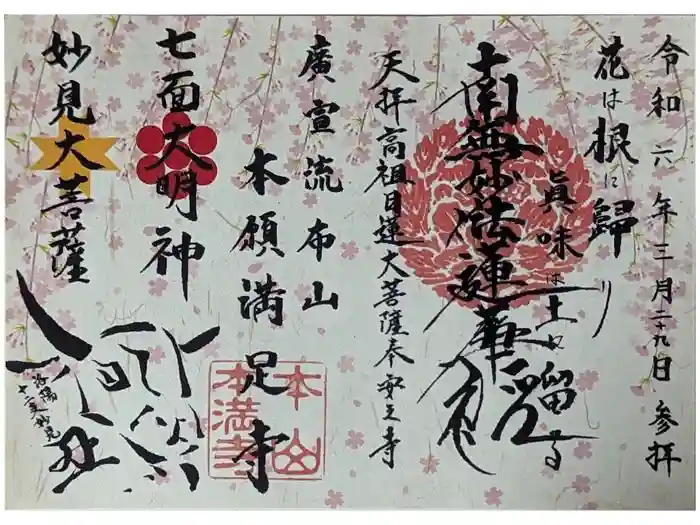 令和六年三月二十九日 参拝
花は根に歸り
眞味は土に留る
南無妙法蓮華経
天拝高祖日蓮大菩薩奉安之寺
廣宣流布山
本願満足寺
本山
本満寺
七面大明神
妙見大菩薩
洛陽
十二支妙見